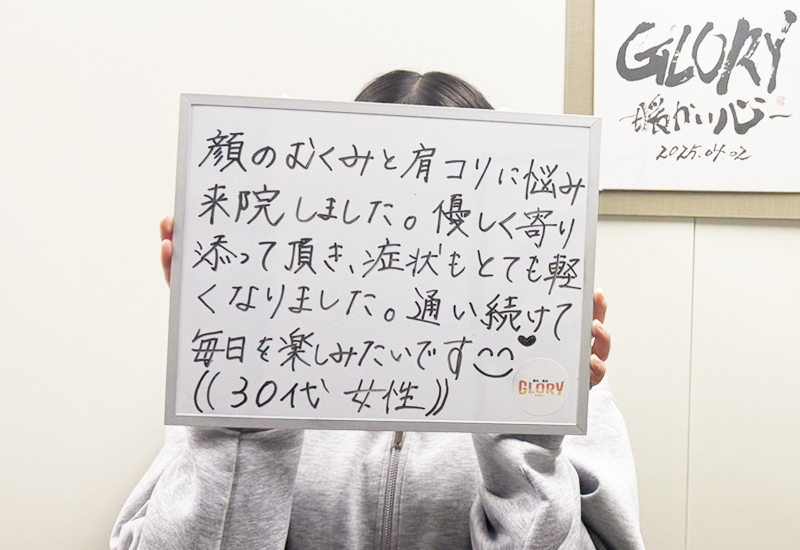 顔のむくみと肩コリに悩み
来院しました。優しく寄り
添って頂き、症状もとても軽
くなりました。通い続けて
毎日を楽しみたいです
((30代 女性))
GLORY
GLORY
暖かい心
2025.04.02